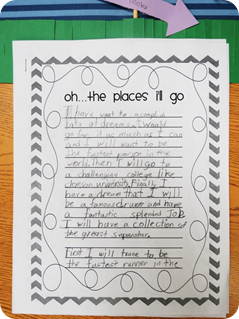 oh...the places i'll go
I have want to
lots of dreams. I would
go for it as much as I can
and I will want to be
the fastest person in the
world. then I will go to
a challenging college like
clemson university. Finally I
have a dream that I will
be a famous and have
a fantastic splended JOB
I will have a collection of
the
First I will have to be
the fastest runner in the